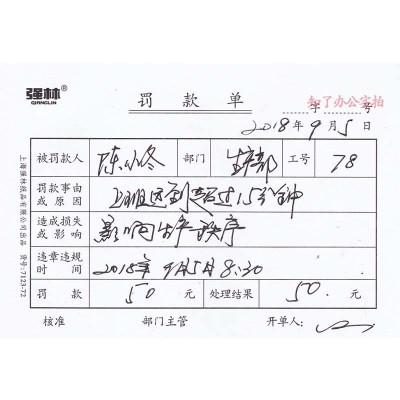 强林®
QIANGLIN
知了办公实拍
罚款单
字 号
2018年9月5日
被罚款人 陈小冬 部门 生产部 工号 78
罚款事由或原因 上班迟到超过15分钟
造成损失或影响 影响生产秩序
违章违规时间 2018年9月5日8:30
罚款 50元 处理结果 50.元
核准 部门主管 开单人:
上海强林纸品有限公司出品 货号:7123-72